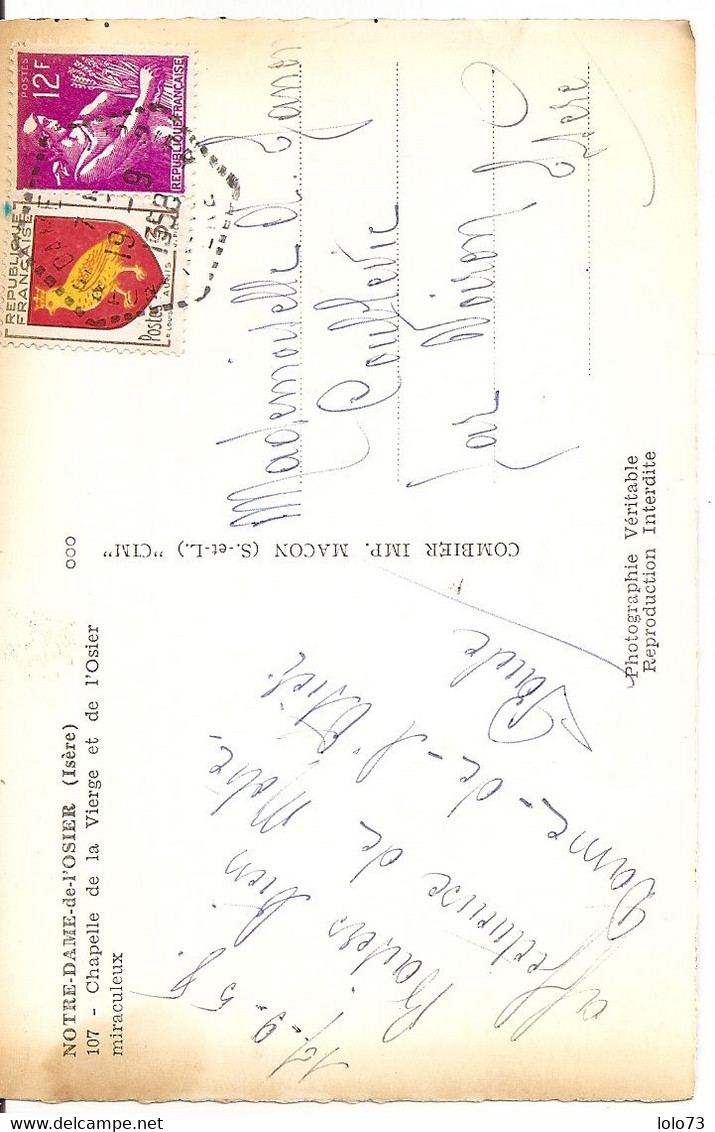 NOTRE-DAME-de-l'OSIER (Isère)
107 - Chapelle de la Vierge et de l'Osier
miraculeux
17-9-58.
Baisers bien
affectueuse de Notre-
Dame-de-l'Osier
Paule
ooo
COMBIER IMP. MACON (S.-et-L.) "CIM"
POSTES
12F
REPUBLIQUE FRANÇAISE
REPUBLIQUE
FRANÇAISE
Postes
AUNIS
19 -9
1958
Mademoiselle
Coublevie
par Voiron
Isère
Photographie Véritable
Reproduction Interdite
lolo73